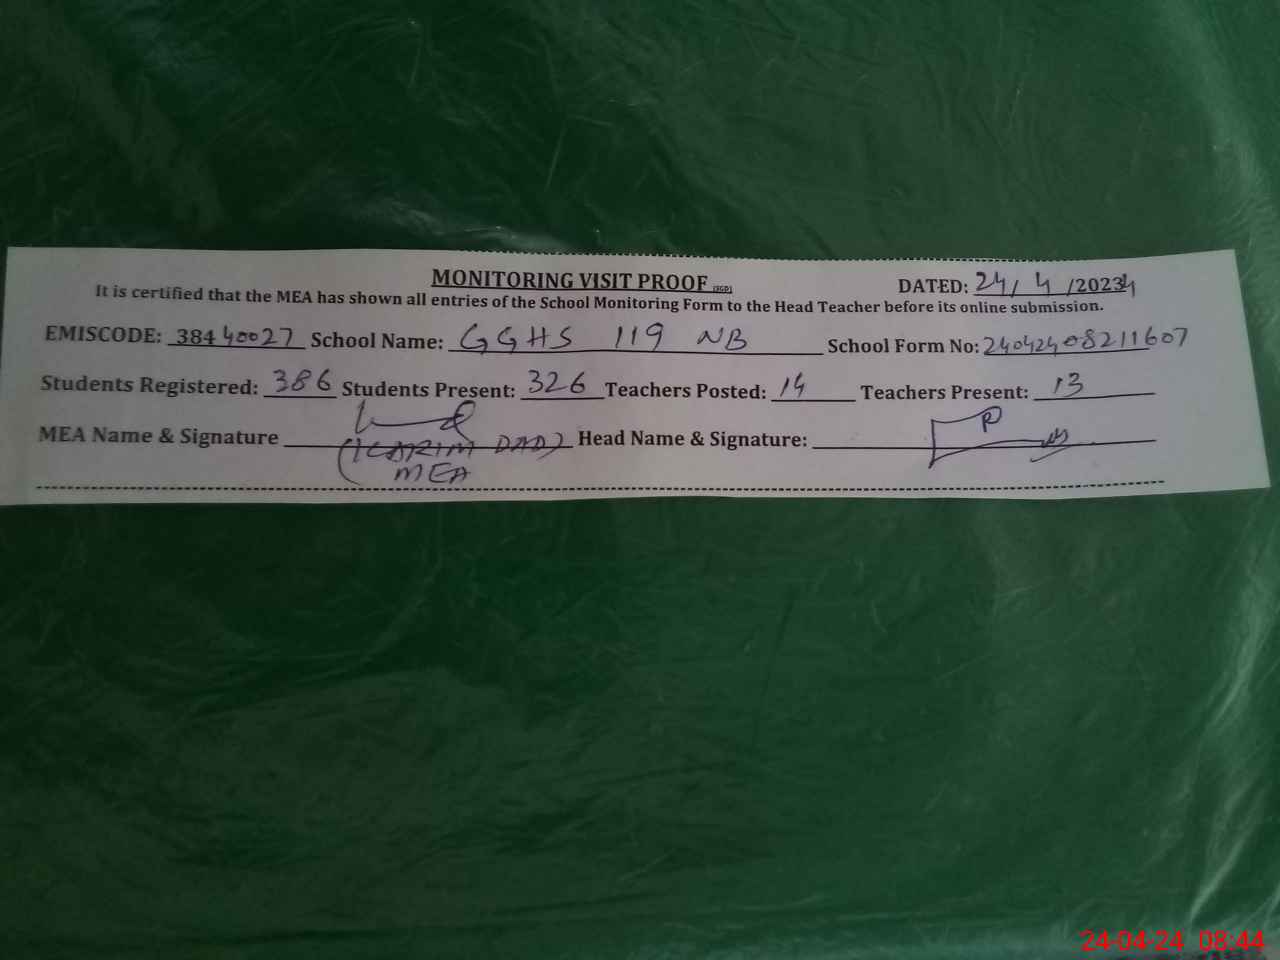 MONITORING VISIT PROOF (SGD) DATED: 24/4/2024
It is certified that the MEA has shown all entries of the School Monitoring Form to the Head Teacher before its online submission.
EMISCODE: 38440027 School Name: GGHS 119 NB School Form No: 24042408211607
Students Registered: 386 Students Present: 326 Teachers Posted: 14 Teachers Present: 13
MEA Name & Signature (KARIM DAD) Head Name & Signature:
MEA
24-04-24 08:44